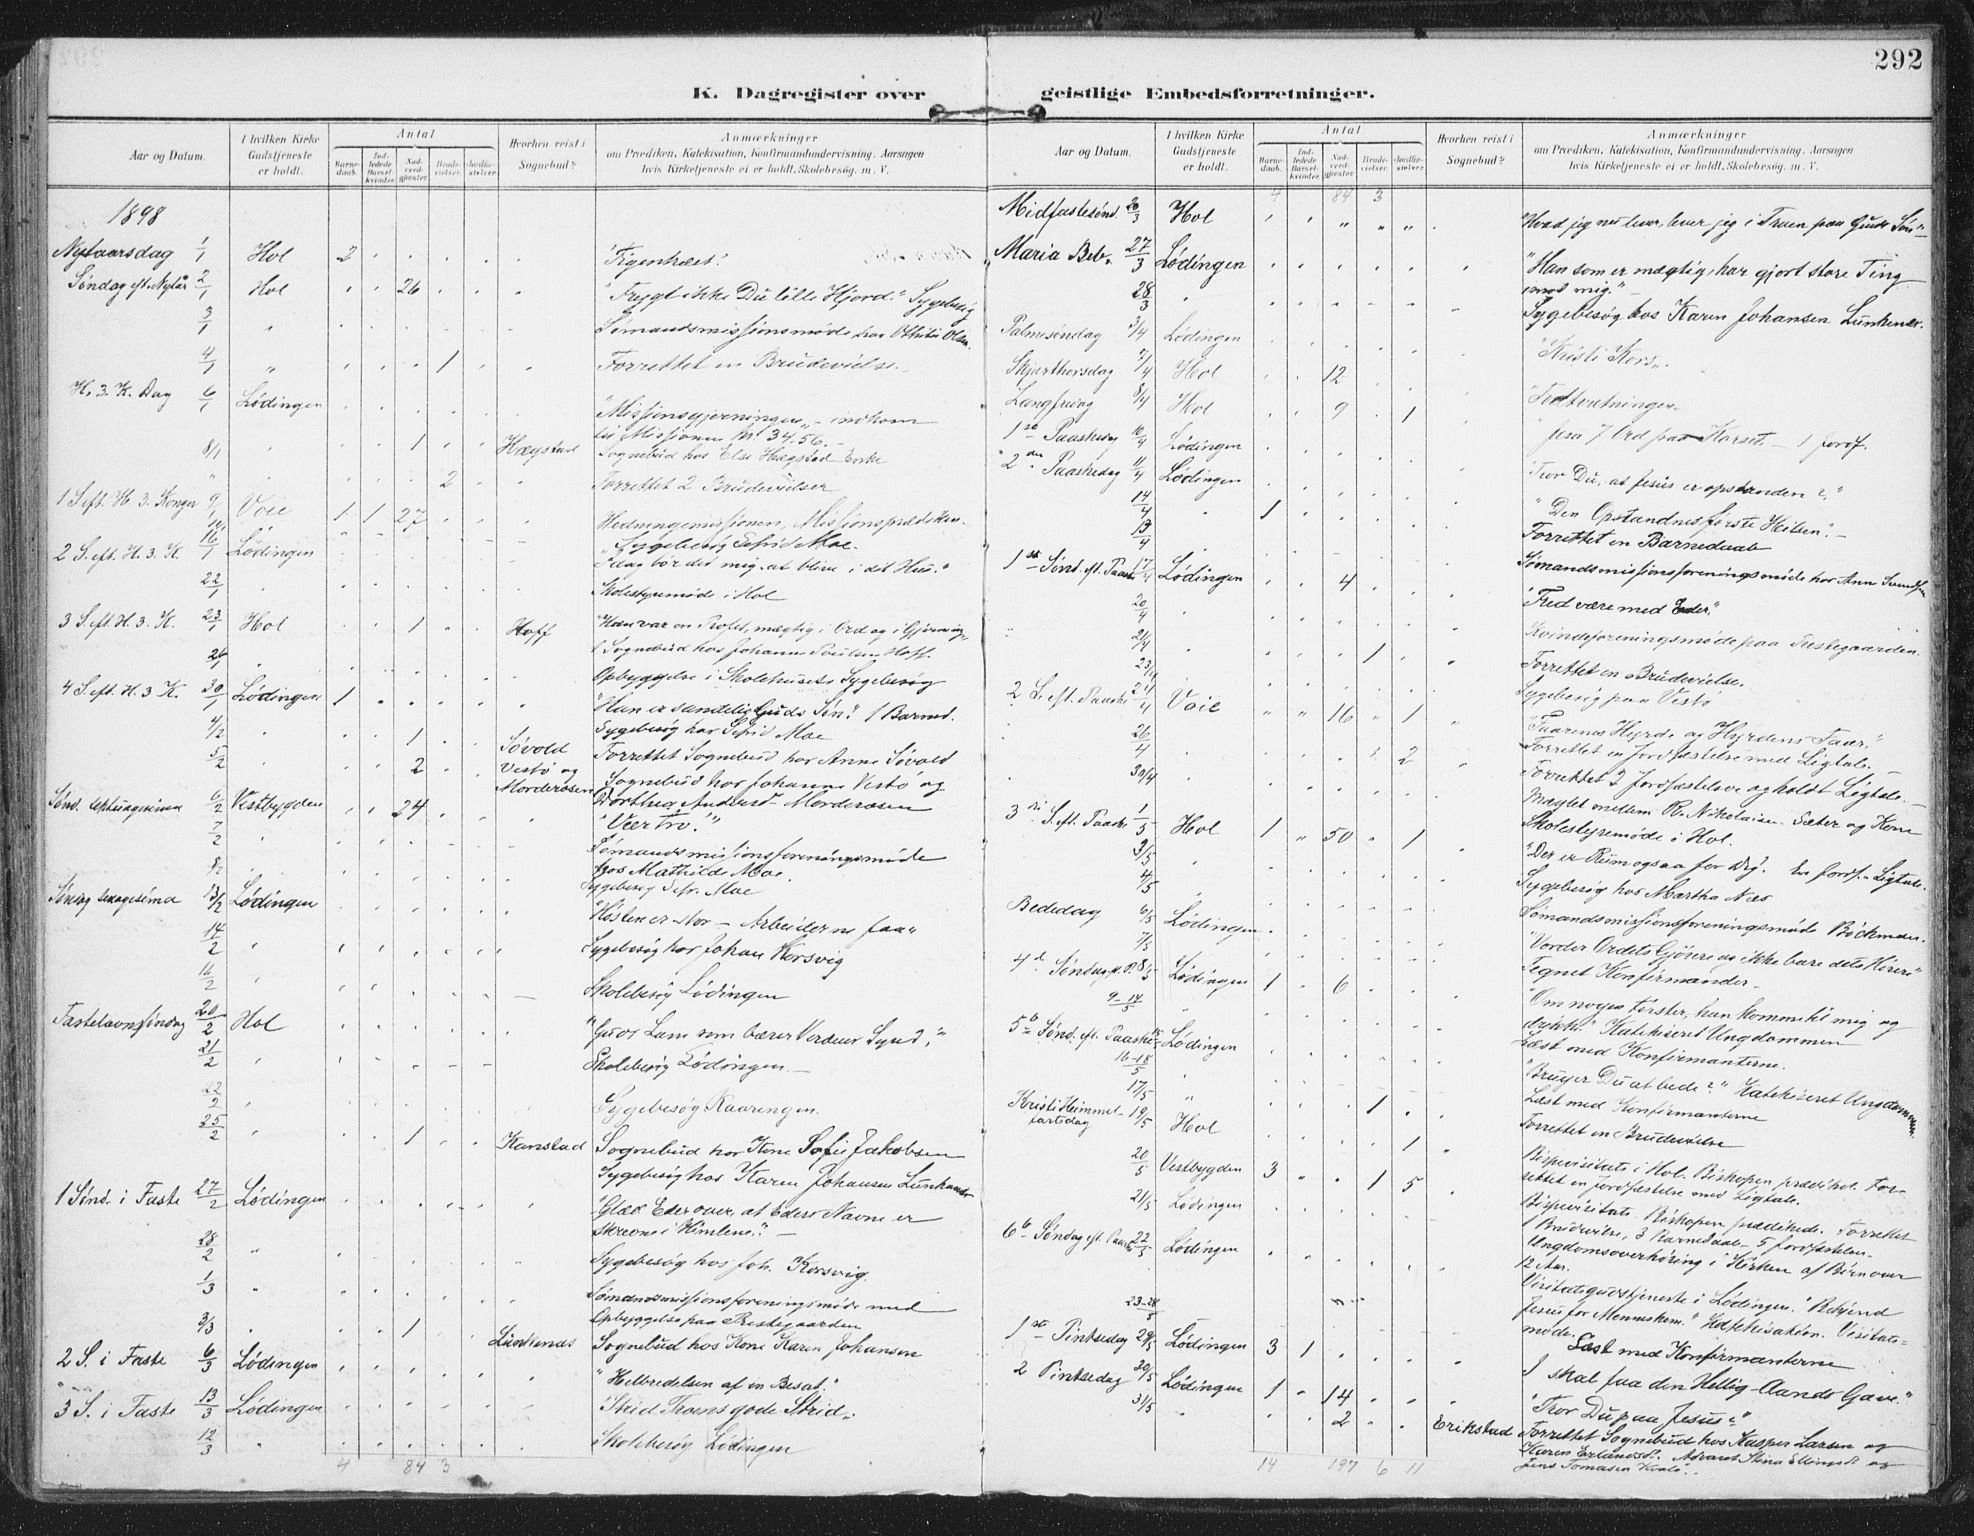 292
K. Dagregister over geistlige Embedsforretninger.
Aar og Datum. I hvilken Kirke Gudstjeneste er holdt. Antal Barnedaab. Indledede Barselkvinder. Nadverdgjæster. Brudevielser. Jordfæstelser. Hvorhen reist i Sognebud? Anmærkninger om Prædiken, Katekisation, Konfirmandundervisning. Aarsagen hvis Kirketjeneste ei er holdt. Skolebesøg. m. V.
1898
Nytaarsdag 1/1 Hol 2 "Figentræet".
Søndag eft. Nytår 2/1 Hol 26 "Frygt ikke Du lille Hjord." Sygebesøg
3/1 " Sømandsmissionsmøde hos Olsen.
4/1 " 1 Forrettet en Brudevielse.
H. 3. K. Dag 6/1 Lødingen "Missionsgjerningen" - indkom
til Missionen Kr. 34.56.
8/1 " 1 Hægstad Sognebud hos Else Hægstad Enke
" 2 Forrettet 2 Brudevielser
1 S. eft. H. 3. Konger 9/1 Voie 1 1 27 Hedningemissionen, Missionsprædiken.
Sygebesøg Moe.
2 S. eft. H. 3. K. 16/1 Lødingen "Idag bør det mig at blive i dit Hus."
22/1 " Skolestyremøde i Hol
3 S. eft. H. 3. K. 23/1 Hol 1 Hoff "Han var en Profet, mægtig i Ord og i Gjerning"
1 Sognebud hos Johanna Hoff.
26/1 " Opbyggelse i Skolehuset. Sygebesøg
4 S. eft. H. 3 K. 30/1 Lødingen 1 "Han er sandelig Guds Søn". 1 Barned.
Sygebesøg hos Moe
4/2 " 1 Søvold Forrettet Sognebud hos Anne Søvold
5/2 " 2 Vestø og Sognebud hos Johanna Vestø og
Sønd. Septuagesima 6/2 Vestbygden 24 "Vær tro!"
7/2 " Sømandsmissionsforeningsmøde
hos Mathilde Moe.
8/2 Sygebesøg Moe
Søndag Sexagesima 13/2 Lødingen "Høsten er stor - Arbeiderne faa"
14/2 " Sygebesøg hos Johan Korsvig
16/2 " Skolebesøg Lødingen
Fastelavnssøndag 20/2 Hol "Guds Lam som bærer Verdens Synd."
21/2 " Skolebesøg Lødingen.
22/2 " Sygebesøg Kaaringen.
25/2 " 1 Kanstad Sognebud hos Kone Sofie Jakobsen
Sygebesøg hos Karen Johansen
1 Sønd. i Faste 27/2 Lødingen "Glæd Eder over, at Eders Navne er
skrevne i Himlene."
28/2 " Sygebesøg hos Joh. Korsvig.
1/3 " Sømandsmissionsforeningsmøde med
Opbyggelse paa Prestegaarden
3/3 " 1 Sognebud hos Kone Karen Johansen
2 S. i Faste 6/3 Lødingen "Helbredelsen af en Besat."
3 S. i Faste 13/3 Lødingen "Strid Troens gode Strid".
12/3 " Skolebesøg Lødingen
4 84 3
Aar og Datum. I hvilken Kirke Gudstjeneste er holdt. Antal Barnedaab. Indledede Barselkvinder. Nadverdgjæster. Brudevielser. Jordfæstelser. Hvorhen reist i Sognebud? Anmærkninger om Prædiken, Katekisation, Konfirmandundervisning. Aarsagen hvis Kirketjeneste ei er holdt. Skolebesøg. m. V.
4 84 3
Midfastesønd. 20/3 Hol "Hvad jeg nu lever, lever jeg i Troen paa Guds Søn"
Maria Beb. 27/3 Lødingen "Han som er mægtig, har gjort store Ting
imod mig."
28/3 " Sygebesøg hos Karen Johansen
Palmesøndag 3/4 Lødingen "Kristi Kors".
Skjærthorsdag 7/4 Hol 12
Langfredag 8/4 Hol 9 1 Jesu 7 Ord paa Korset. - 1 Jordf.
1ste Paaskedag 10/4 Lødingen "Tror Du, at Jesus er opstanden?"
2den Paaskedag 11/4 Lødingen "Den Opstandnes første Hilsen".
14/4 " 1 Forrettet en Barnedaab
13/4 Sømandsmissionsforeningsmøde hos Anne
1ste Sønd. eft. Paaske 17/4 Lødingen 4 "Fred være med Eder."
20/4 " Kvindeforeningsmøde paa Prestegaarden.
21/4 " 1 Forrettet en Brudevielse.
23/4 Sygebesøg paa Vestø
2 S. eft. Paaske 24/4 Voie 16 1 "Faarenes Hyrde og Hyrdens Faar."
Forrettet en Jordfæstelse med Ligtale.
26/4 " 2 Forrettet 2 Jordfæstelser og holdt Ligtale.
30/4 " Mæglet mellem R. Nikolaisen Sæter og Kone
Skolestyremøde i Hol.
3die S. eft. Paaske 1/5 Hol 1 50 1 "Der er Rum ogsaa for Dig". En Jordf. Ligtale.
3/5 " Sygebesøg hos Martha Næs
4/5 Sømandsmissionsforeningsmøde Böckman.
Bededag 6/5 Lødingen "Vorder Ordets Gjørere og ikke bare dets Hørere"
7/5 Tegnet Konfirmander.
4de Søndag 8/5 Lødingen 1 6 "Om nogen tørster, han komme til mig og
drikke." Katekiseret Ungdommen
9-14/5 " Læst med Konfirmanterne.
5te Sønd. eft. Paaske 15/5 Lødingen "Bruger Du at bede?" Katekiseret Ungdommen
16-18/5 Læst med Konfirmanterne
17/5 " 1 Forrettet en Brudevielse
Kristi Himmelfartsdag 19/5 Hol 1 Bispevisitats i Hol. Biskopen prædiket. For-
rettet en Jordfæstelse med Ligtale.
20/5 Vestbygden 3 1 5 Bispevisitats. Biskopen prædikede. Forrettet
1 Brudevielse, 3 Barnedaab - 5 Jordfæstelser.
21/5 Lødingen Ungdomsoverhøring i Kirken af Børn over
12 Aar.
6te Søndag eft. Paaske 22/5 Lødingen Visitatsgudstjeneste i Lødingen.
Jesus for Menneskene." Katekisation. Visitats-
møde.
23-28/5 Læst med Konfirmanterne
1ste Pintsedag 29/5 Lødingen 3 1 "I skal faa den Hellig-Aands Gave."
2 Pintsedag 30/5 Lødingen 1 14 "Tror Du paa Jesus?"
31/5 " 2 Erikstad Forrettet Sognebud hos Kasper Larsen og
14 197 6 11